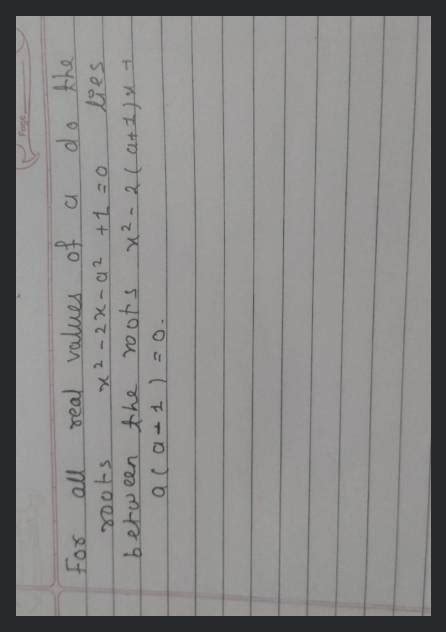 Page
For all real values of a do the
roots x² - 2x - a² + 1 = 0 lies
between the roots x² - 2(a+1)x +
a(a-1) = 0.